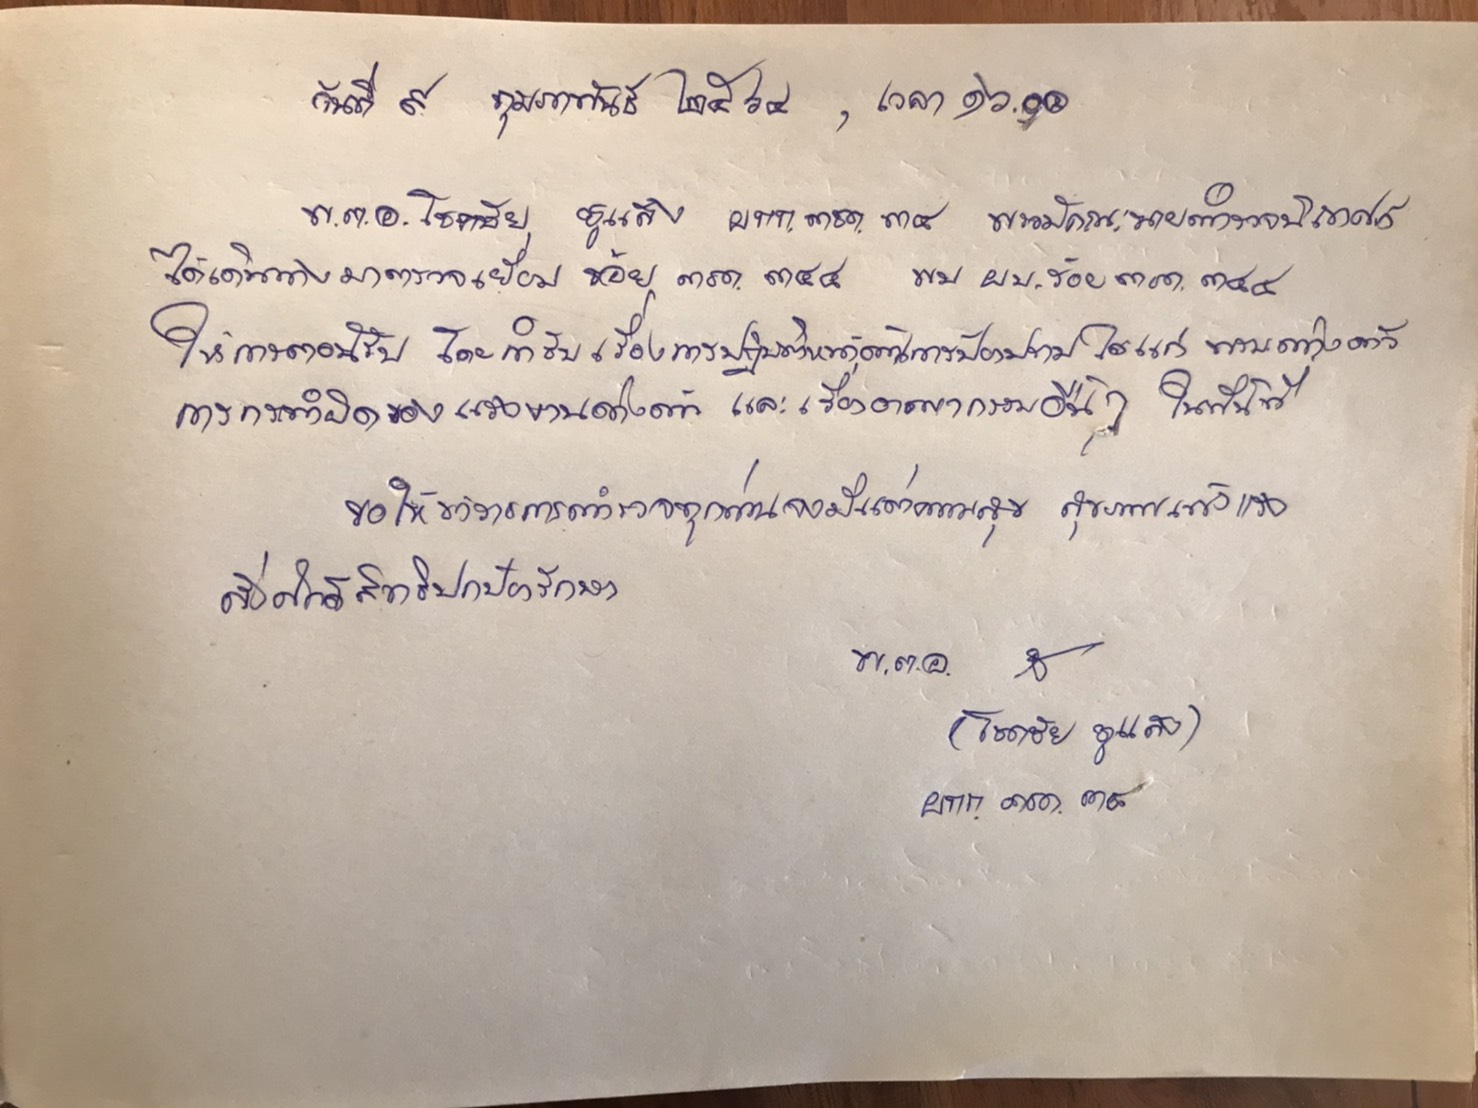 วันที่ ๙ กุมภาพันธ์ ๒๕๖๔ , เวลา ๑๖.๑๐
พ.ต.อ. โชคชัย ชูแสง ผกก.ตชด. ๓๔ พร้อมคณะนายตำรวจนิเทศก์
ได้เดินทางมาตรวจเยี่ยม ร้อย ตชด. ๓๔๔ พบ ผบ.ร้อย ตชด. ๓๔๔
ให้การต้อนรับ โดยกำชับเรื่องการปฏิบัติหน้าที่ด้านการป้องปราม ได้แก่ คนต่างด้าว
การกระทำผิดของแรงงานต่างด้าว และเรื่องอาชญากรรมอื่นๆ ในพื้นที่
ขอให้ข้าราชการตำรวจทุกท่านจงมีแต่ความสุข สุขภาพแข็งแรง
สิ่งศักดิ์สิทธิ์ปกปักรักษา
พ.ต.อ.
(โชคชัย ชูแสง)
ผกก. ตชด. ๓๔